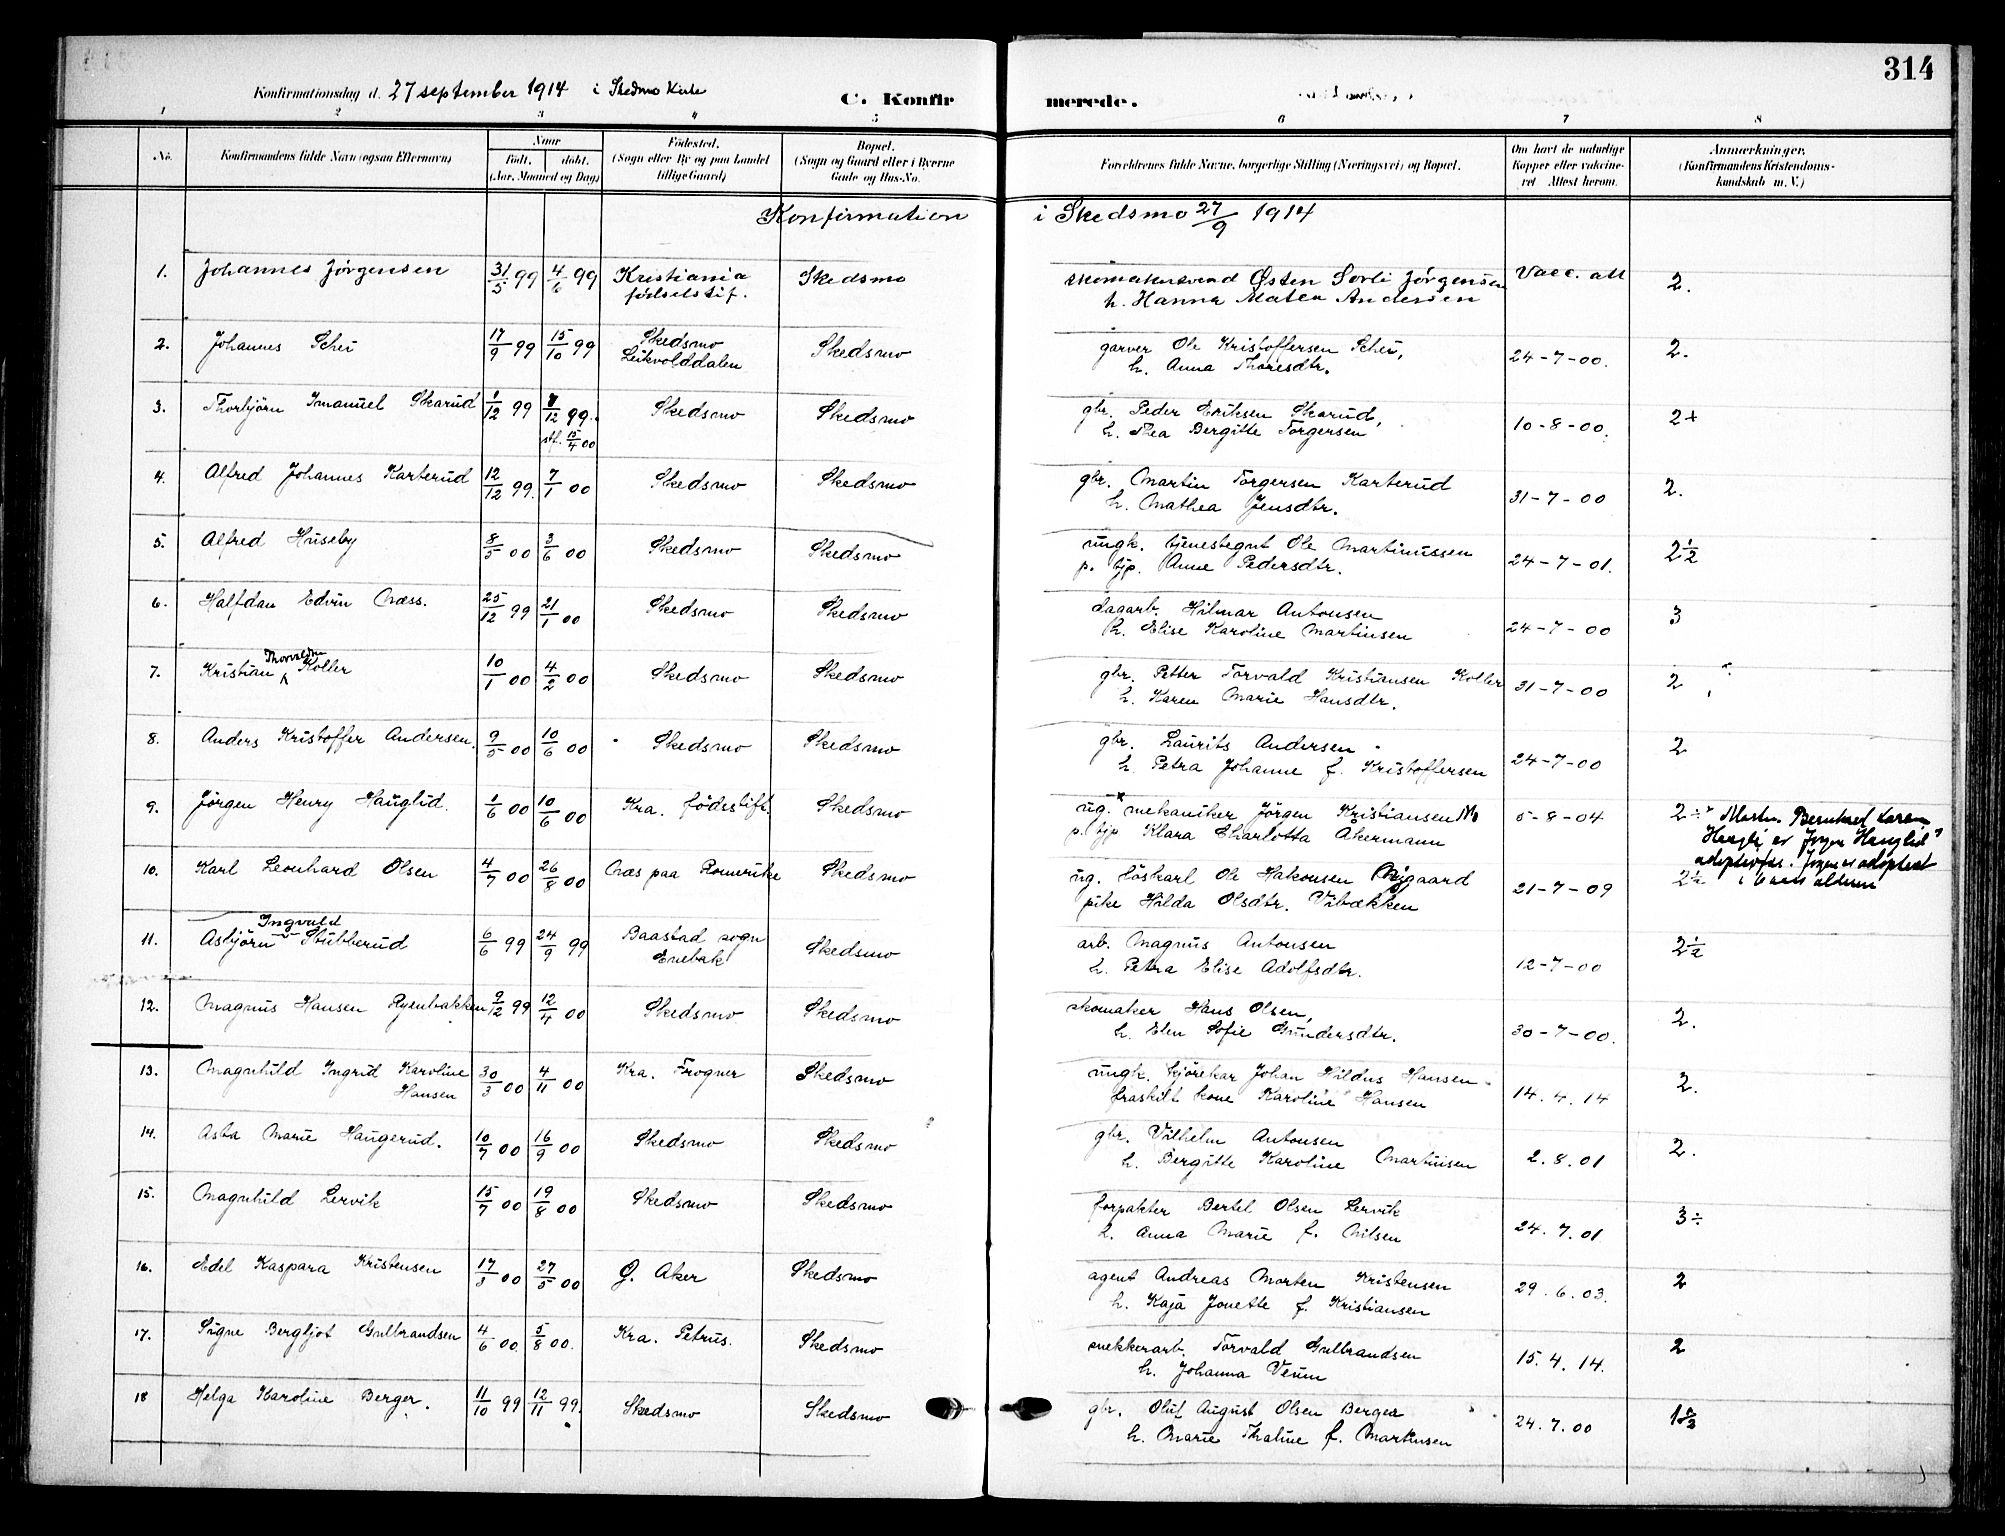 314
Konfirmationsdag d. 27 september 1914 i Skedsmo Kirke
C. Konfirmerede.
1 2 3 4 5 6 7 8
No. Konfirmandens fulde Navn (ogsaa Efternavn) Naar født. døbt. (Aar, Maaned og Dag) Fødested. (Sogn eller By og paa Landet tillige Gaard) Bopæl. (Sogn og Gaard eller i Byerne Gade og Hus-No. Forældrenes fulde Navne, borgerlige Stilling (Næringsvei) og Bopæl. Om havt de naturlige Kopper eller vakcineret. Attest herom. Anmærkninger. (Konfirmandens Kristendomskundskab m. V.)
Konfirmation i Skedsmo 27/9 1914
1. Johannes Jørgensen 31/5 99 4/6 99 Kristiania Skedsmo skomakersvend Østen Sørli Jørgensen Vacc. att 2.
fødselsstif. h. Hanna Matea Andersen
2. Johannes Schei 17/9 99 15/10 99 Skedsmo Skedsmo garver Ole Kristoffersen Schei, 24-7-00. 2.
Leikvolddalen h. Anna Thoresdtr.
3. Thorbjørn Imanuel Skarud 1/12 99 Skedsmo Skedsmo gbr. Peder Eriksen Skarud, 10-8-00. 2+
stf. 15/4 00 h. Thea Bergitte Torgersen
4. Alfred Johannes Karterud 12/12 99. 7/1 00 Skedsmo Skedsmo gbr. Martin Torgersen Karterud 31-7-00 2.
h. Mathea Jensdtr.
5. Alfred Huseby 8/5 00 3/6 00 Skedsmo Skedsmo ungk. tjenestegut Ole Martinussen 24-7-01. 2½
p. tjp. Anne Pedersdtr.
6. Halfdan Edvin Næss. 25/12 99 21/1 00 Skedsmo Skedsmo dagarb. Hilmar Antonsen 24-7-00 3
h. Elise Karoline Martinsen
7. Kristian Thorvaldsen Koller 10/1 00 4/2 00 Skedsmo Skedsmo gbr. Petter Torvald Kristiansen Koller 31-7-00 2
h. Karen Marie Hansdtr.
8. Anders Kristoffer Andersen. 9/5 00 10/6 00 Skedsmo Skedsmo gbr. Laurits Andersen 24-7-00 2
h. Petra Johanne f. Kristoffersen
9. Jørgen Henry Hauglid. 1/6 00 10/6 00 Kra. fødestift. Skedsmo ug. mekaniker Jörgen Kristiansen Mo 5-8-04 2÷ Morten Bernhard
p. tjp Klara Charlotta Åkermann Jørgen Hauglid
adoptivfar. Jørgen er adoptert
i alderen
10. Karl Leonhard Olsen 4/7 00 26/8 00 Næs paa Romerike Skedsmo ug. løskarl Ole Hakonsen Nygaard 21-7-09 2½
pike Hilda Olsdtr. Vibækken
11. Asbjörn Ingvald Stubberud 6/6 99 24/9 99 Baastad sogn Skedsmo arb. Magnus Antonsen 12-7-00 2½
Enebak h. Petra Elise Adolfsdtr.
12. Magnus Hansen Ryenbakken 9/12 99 12/4 00 Skedsmo Skedsmo skomaker Hans Olsen, 30-7-00. 2.
h. Elen Sofie Gundersdtr.
13. Magnhild Ingrid Karoline Hansen 30/3 00 4/11 00 Kra. Frogner Skedsmo ungk. kjørekar Johan Hildus Hansen 14.4.14 2.
fraskilt kone Karoline Hansen
14. Asta Marie Haugerud. 10/7 00 16/9 00 Skedsmo Skedsmo gbr. Vilhelm Antonsen 2.8.01 2.
h. Bergitte Karoline Martinsen
15. Magnhild Lervik 15/7 00 19/8 00 Skedsmo Skedsmo forpakter Bertel Olsen Lervik 24.7.01 3÷
h. Anna Marie f. Nilsen
16. Edel Kaspara Kristensen 17/3 00 27/5 00 Ø. Aker Skedsmo agent Andreas Morten Kristensen 29.6.03. 2
h. Kaja Jonette f. Kristiansen
17. Signe Bergljot Gulbrandsen 4/6 00. 5/8 00. Kra. Petrus. Skedsmo snekkerarb. Torvald Gulbrandsen 15.4.14. 2
h. Johanna Veum
18 Helga Karoline Berger. 11/10 99 12/11 99. Skedsmo Skedsmo gbr. Oluf August Olsen Berger 24.7.00
h. Marie Thaline f. Martinsen